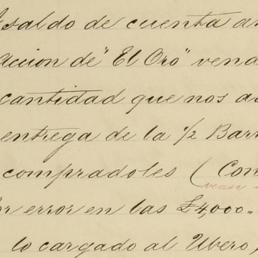 saldo de cuenta an
accion de "El Oro" vend
cantidad que nos a
entrega de la 1/2 Barr
compradoles ( Con
error en las £4,000.
lo cargado al Ubero,